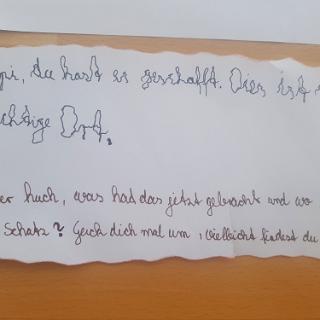 pi, du hast es geschafft. Dies ist
chtige Ort.
er huch, was hat das jetzt gebracht und wo
Schatz? Guck dich mal um, vielleicht findest du